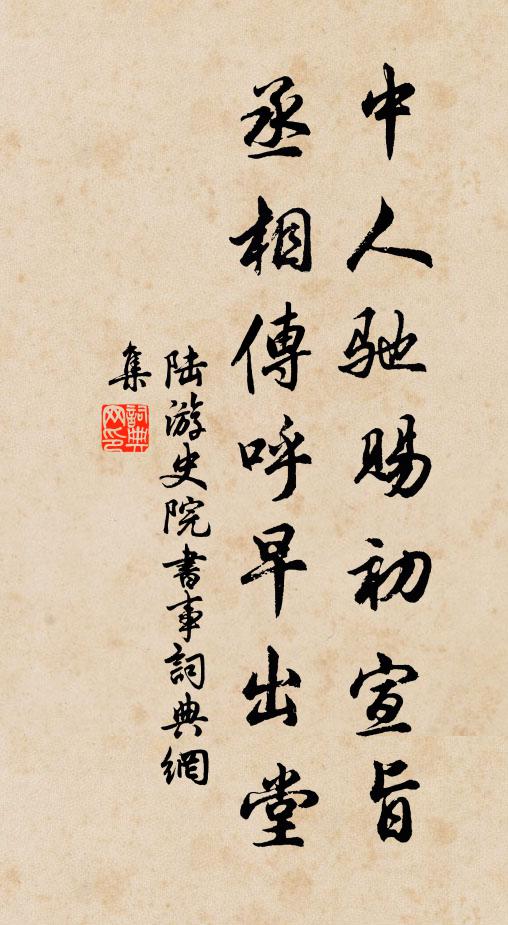 中人驰赐初宣旨
丞相傳呼早出堂
陆游史院書事詞典網
集
詞典
网印